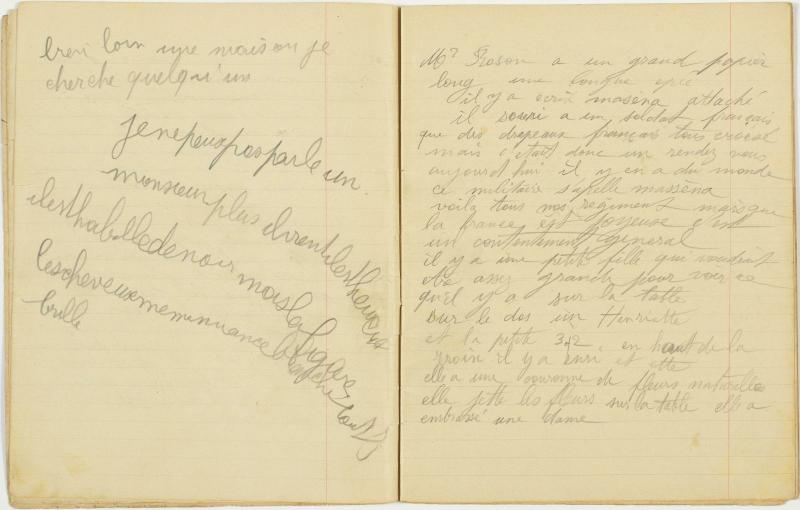 bien loin une maison je
cherche quelqu'un
je ne peux pas parle un
monsieur plus il vient il est heureux
il est habelle de noir mais la figure
les cheveux meme nuance blanche tout
brille
Mr Roson a un grand papier
long une longue epee
il y a ecrit massena attaché
il souri a un soldat français
que des drapeaux français tous
mais c'etait donc un rendez vous
aujourd hui il y en a du monde
ce militaire s'apelle masséna
voila tous nos régiment mais que
la france est joyeuse c'est
un contentement general
il y a une petite fille qui voudrait
etre assez grande pour voir ce
qu'il y a sur la table
sur le dos un Henriette
et la petite 3 2 en haut de la
il y a et
elle a une couronne de fleurs naturelle
elle jette les fleurs sur la table elle a
embrassé une dame